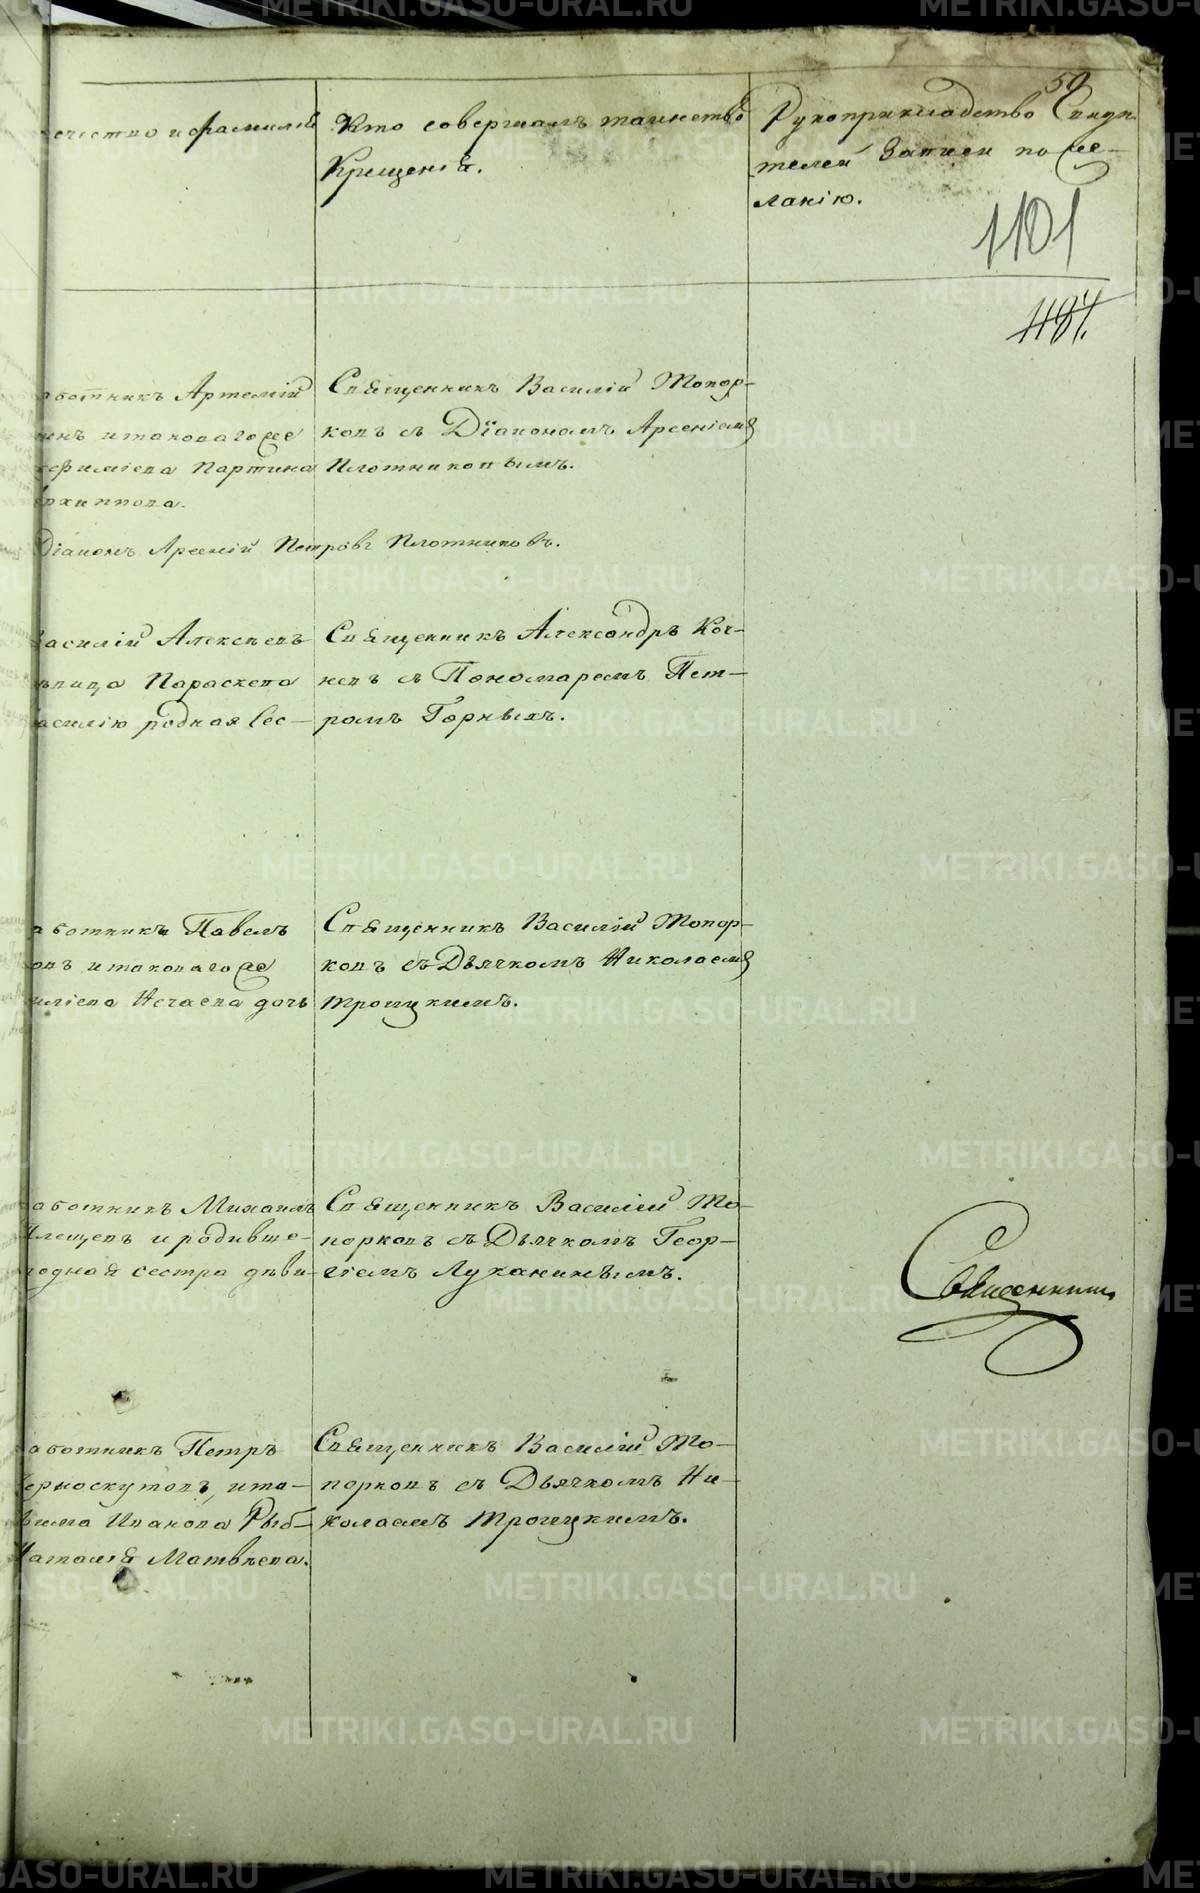 50
отчество и фамилія
Кто совершалъ таинство
Крещенія.
Рукоприкладство Свидѣ-
телей Записи по же-
ланію.
1101
1187.
аботникъ Артемій
инъ и таковаго же
ефиміева Партина
рхиппова.
Діаконъ Арсеній Петровъ Плотниковъ.
Священникъ Василій Топор-
ковъ съ Діакономъ Арсеніемъ
Плотниковымъ.
Василій Алексѣевъ
ѣвица Параскева
асилію родная Сес-
Священникъ Александръ Коч-
невъ съ Пономаремъ Пет-
ромъ Горныхъ.
аботникъ Павелъ
овъ и таковаго же
иліева Нечаева дочь
Священникъ Василій Топор-
ковъ съ Дьячкомъ Николаемъ
Троицкимъ.
аботникъ Михаилъ
Клещевъ и родивше-
родная сестра дѣви-
Священникъ Василій То-
порковъ съ Дьячкомъ Геор-
гіемъ Луканинымъ.
Священникъ
аботникъ Петръ
Черноскутовъ, и та-
има Иванова Рыб-
Наталія Матвѣева.
Священникъ Василій То-
порковъ съ Дьячкомъ Ни-
колаемъ Троицкимъ.
METRIKI.GASO-URAL.RU